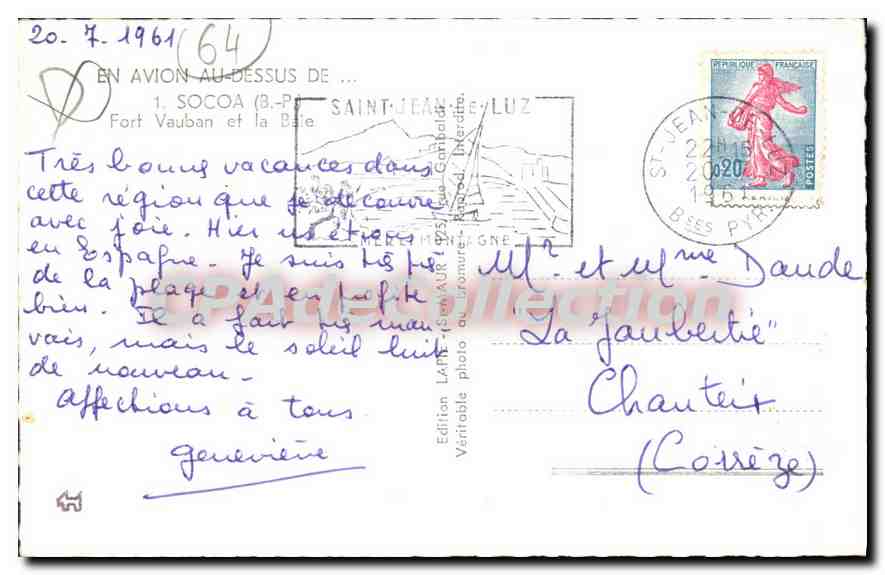 20. 7. 1961
64
EN AVION AU-DESSUS DE ...
1. SOCOA (B.-P.)
Fort Vauban et la Baie
Très bonne vacances dans
cette région que je découvre
avec joie. Hier ns étions
en Espagne. Je suis très près
de la plage et en profite
bien. Il a fait très mau-
vais, mais le soleil luit
de nouveau.
Affections à tous.
Geneviève
SAINT-JEAN-de-LUZ
MER MONTAGNE
Edition LAPIE, (St-MAUR) 25, rue Garibaldi
Véritable photo au bromure - Reprod. Interdite.
REPUBLIQUE FRANÇAISE
0,20
POSTES
ST-JEAN-
22H15
20
1961
BSES PYR.
Mr et Mme Daude
"La Jaubertie"
Chanteix
(Corrèze)
CPAdeCollection